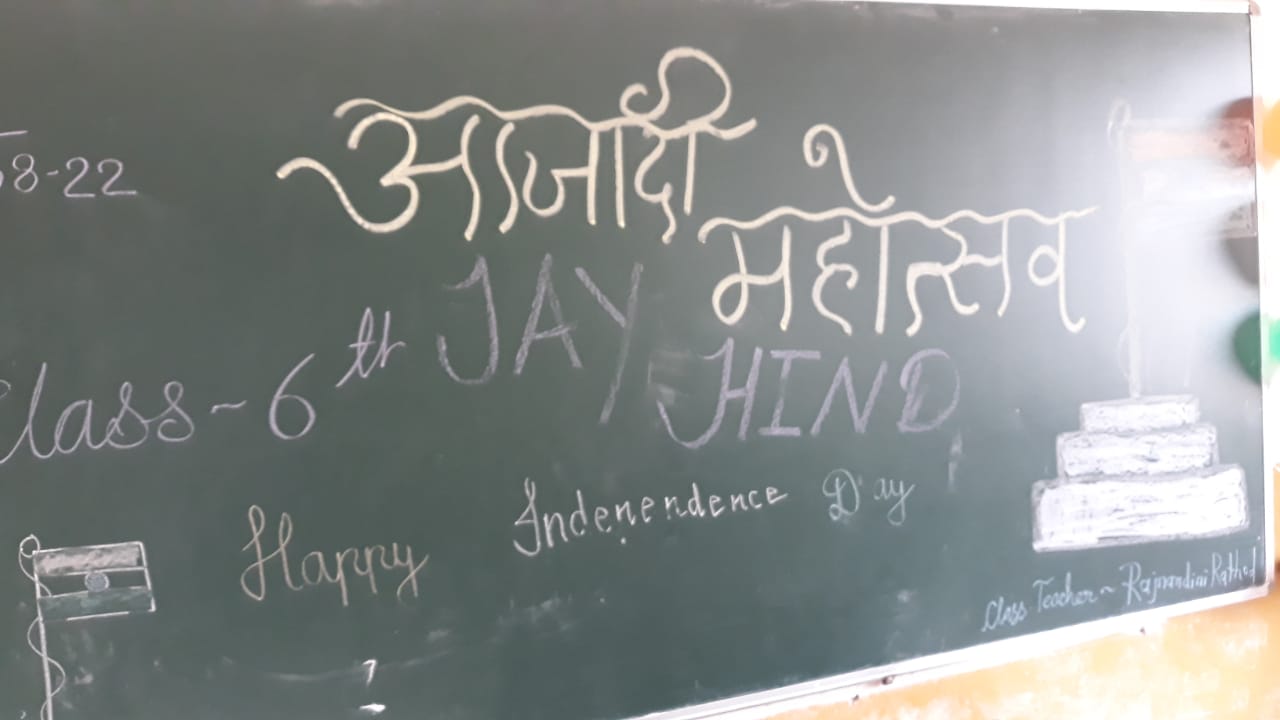 8-22
आजादी
महोत्सव
Class~6th
JAY
HIND
Happy Indenendence Day
Class Teacher~Rajnandini Rathod